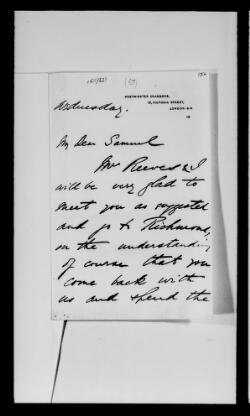 WESTMINSTER CHAMBERS,
13, VICTORIA STREET,
LONDON. S.W.
Wednesday.
My Dear Samuel
Mr Reeves & I
will be very glad to
meet you as suggested
and go to Richmond,
on the understanding
of course that you
come back with
us and spend the